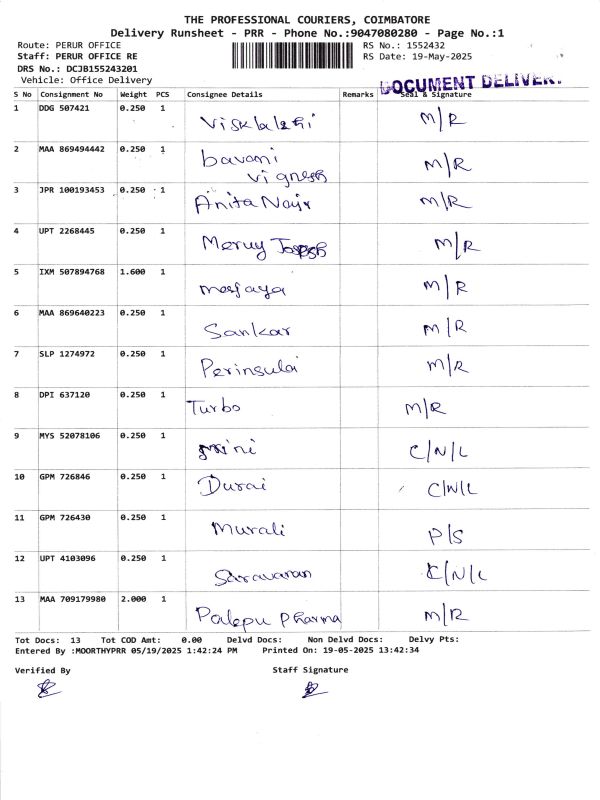 THE PROFESSIONAL COURIERS, COIMBATORE
Delivery Runsheet - PRR - Phone No.:9047080280 - Page No.:1
Route: PERUR OFFICE RS No.: 1552432
Staff: PERUR OFFICE RE RS Date: 19-May-2025
DRS No.: DCJB155243201
Vehicle: Office Delivery
DOCUMENT DELIVERY
S No Consignment No Weight PCS Consignee Details Remarks Seal & Signature
1 DDG 507421 0.250 1 M/R
2 MAA 869494442 0.250 1 bavani vignesh M/R
3 JPR 100193453 0.250 1 Anita Nair M/R
4 UPT 2268445 0.250 1 Joseph M/R
5 IXM 507894768 1.600 1 M/R
6 MAA 869640223 0.250 1 Sankar M/R
7 SLP 1274972 0.250 1 Perinsulai M/R
8 DPI 637120 0.250 1 Turbo M/R
9 MYS 52078106 0.250 1 mini C/N/L
10 GPM 726846 0.250 1 Durai C/N/L
11 GPM 726430 0.250 1 Murali P/S
12 UPT 4103096 0.250 1 Saravanan C/N/L
13 MAA 709179980 2.000 1 Palepu Pharma M/R
Tot Docs: 13 Tot COD Amt: 0.00 Delvd Docs: Non Delvd Docs: Delvy Pts:
Entered By :MOORTHYPRR 05/19/2025 1:42:24 PM Printed On: 19-05-2025 13:42:34
Verified By Staff Signature